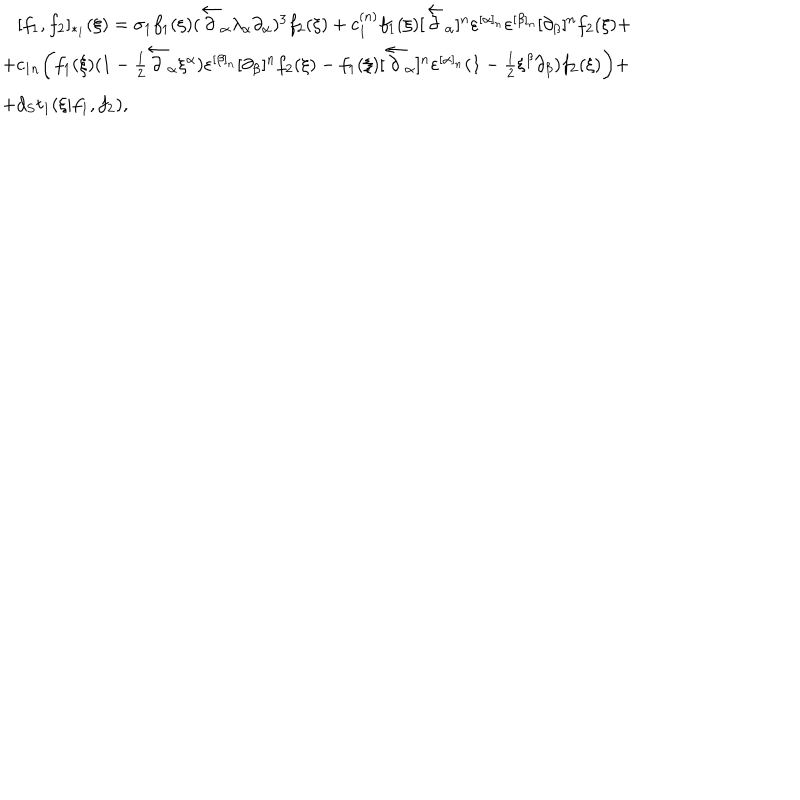 [f_1, f_2]_{*_1}(ξ) = σ_1 f_1(ξ)(\overleftarrow{∂}_α λ_α ∂_α)^3 f_2(ξ) + c_1^{(n)} f_1(ξ)[\overleftarrow{∂}_α]^n ε^{[α]_n} ε^{[β]_n} [∂_β]^n f_2(ξ)+
+c_{1n}(f_1(ξ)(1 − \frac{1}{2}\overleftarrow{∂}_α ξ^α) ε^{[β]_n} [∂_β]^n f_2(ξ) − f_1(ξ)[\overleftarrow{∂}_α]^n ε^{[α]_n} (1 − \frac{1}{2} ξ^β ∂_β) f_2(ξ))+
+d_S t_1(ξ|f_1, f_2),